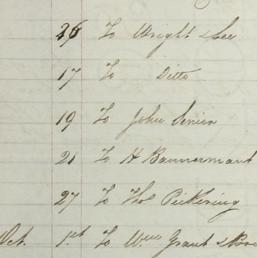 26 To Wright & Lee
17 To Ditto
19 To John Senior
21 To H Bannerman &
27 To Thos Pickering
Oct. 1st To Wm Grant & Bro